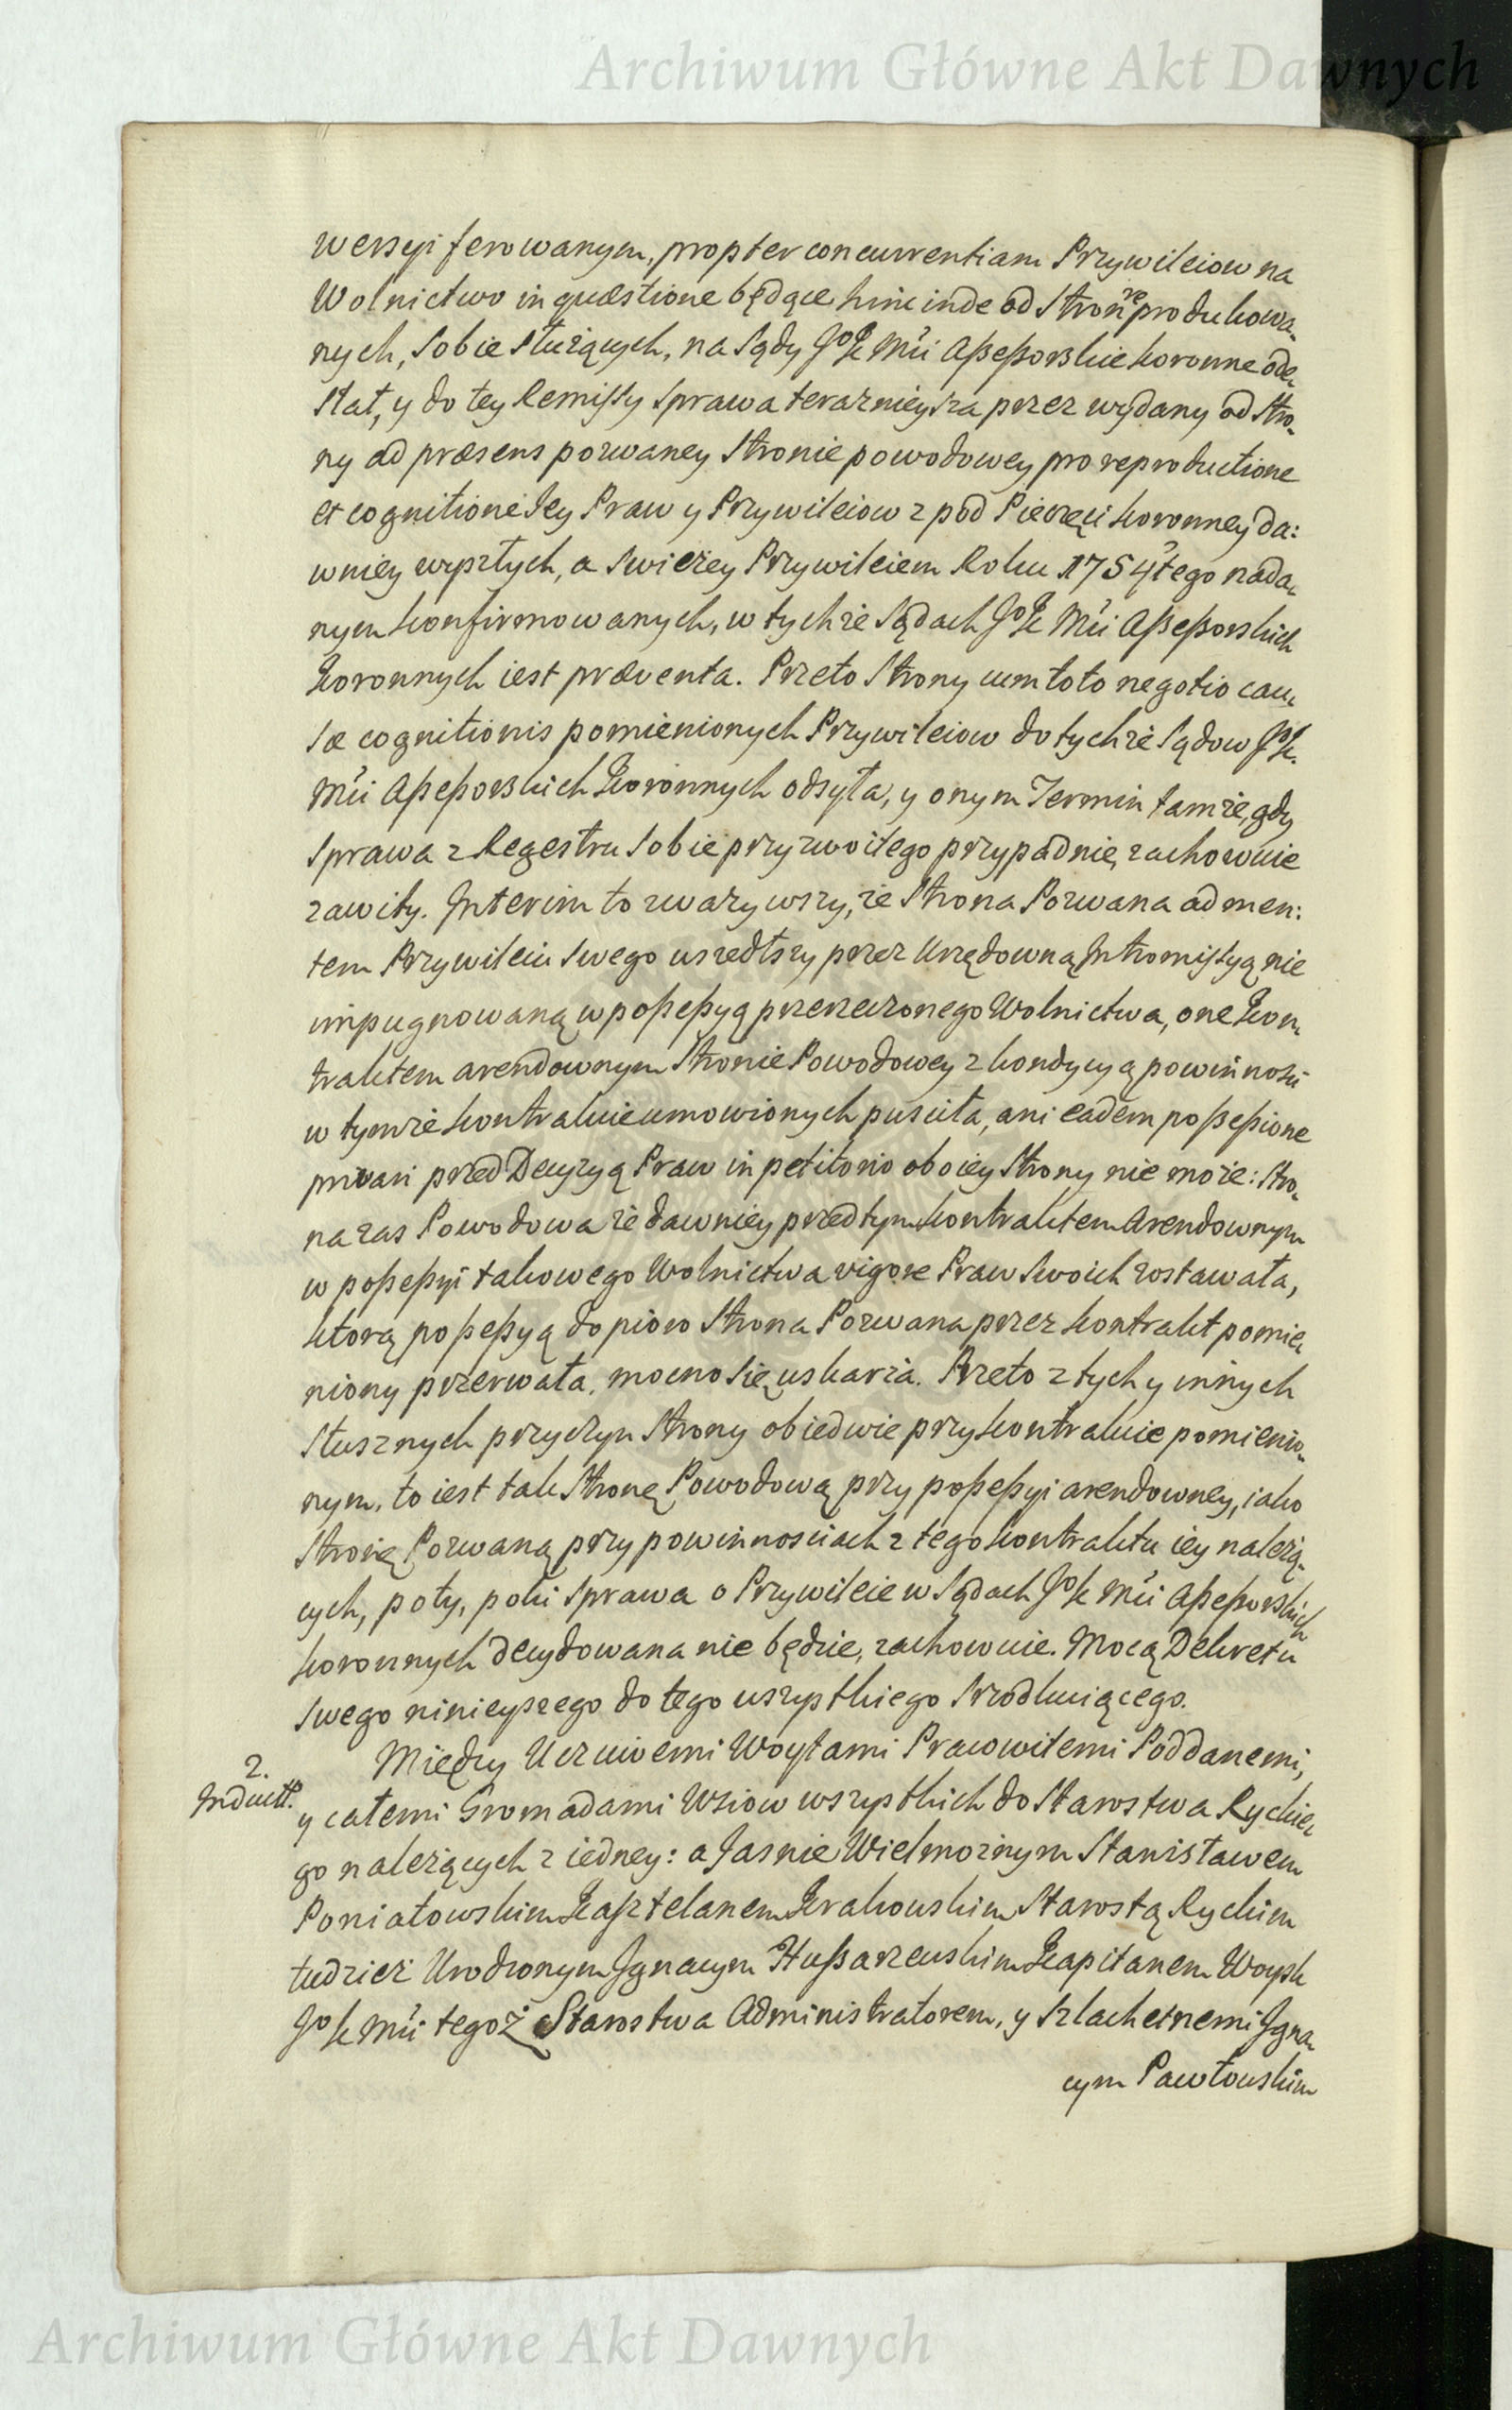 Archiwum Główne Akt Dawnych
wersyi ferowanym, propter concurrentiam Przywileiow na
Wolnictwo in quæstione będące hinc inde od Stron re produkowa-
nych, sobie służących, na Sądy JoK Mci Aßeßorskie koronne ode-
słał, y do tey Remissy Sprawa teraznieysza przez wydany od Stro-
ny ad præsens pozwaney Stronie powodowey pro reproductione
et cognitione Jey Praw y Przywileiow z pod Pieczęci koronney da:
wniey wyszłych, a swieżey Przywileiem Roku 1754tego nada-
nym konfirmowanych, w tychże Sądach JoK Mci Aßeßorskich
Koronnych iest præventa. Przeto Strony cum toto negotio cau-
sæ cognitionis pomienionych Przywileiow do tychże Sądow JoK.
Mci Aßeßorskich Koronnych odsyła, y onym Termin tamże, gdy
Sprawa z Regestru sobie przyzwoitego przypadnie, zachowuie
zawity. Interim to zważywszy, że Strona Pozwana ad men:
tem Przywileiu swego wszedłszy przez Urzędowną Intromissyą nie
impugnowaną w poßeßyą przerzeczonego Wolnictwa, one Kon-
traktem arendownym Stronie Powodowey z kondycyą powinnosci
w tymże kontrakcie umowionych puscila, ani eadem poßeßione
privari przed Decyzyą Praw in petitorio oboiey Strony nie może: Stro-
na zas Powodowa że dawniey przed tym kontraktem Arendownym
w poßeßyi takowego Wolnictwa vigore Praw swoich zostawała,
ktorą poßeßyą dopiero Strona Pozwana przez kontrakt pomie-
niony przerwała, mocno się uskarża. Przeto z tych y innych
słusznych przyczyn Strony obiedwie przy kontrakcie pomienio-
nym, to iest tak Stronę Powodową przy poßeßyi arendowney, iako
Stronę Pozwaną przy powinnosciach z tego kontraktu iey należą-
cych, poty, poki Sprawa o Przywileie w Sądach JoK Mci Aßeßorskich
koronnych decydowana nie będzie, zachowuie. Mocą Dekretu
swego ninieyszego do tego wszystkiego srzodkuiącego.
2.
Induct.
Między Uczciwemi Woytami Pracowitemi Poddanemi,
y całemi Gromadami Wsiow wszystkich do Starostwa Ryckie-
go należących z iedney: a Jasnie Wielmożnym Stanisławem
Poniatowskim Kasztelanem Krakowskim Starostą Ryckim
tudzież Urodzonym Ignacym Hußarzewskim Kapitanem Woysk
JoK Mci tegoż Starostwa Administratorem, y Szlachetnemi Igna-
cym Pawłowskim
Archiwum Główne Akt Dawnych